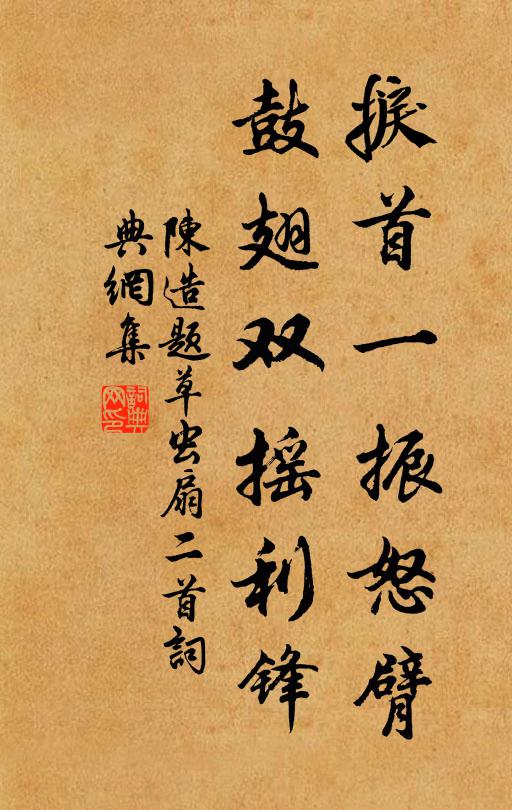 捩首一振怒臂
鼓翅双摇利锋
陳造题草虫扇二首詞
典網集
詞典
网印